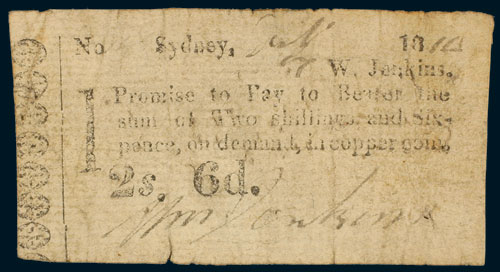 No Sydney, 1810
W. Jenkins.
I Promise to Pay to Bearer the
sum of Two shillings and Six-
pence, on demand, in copper coin.
2s. 6d.
Wm Jenkins